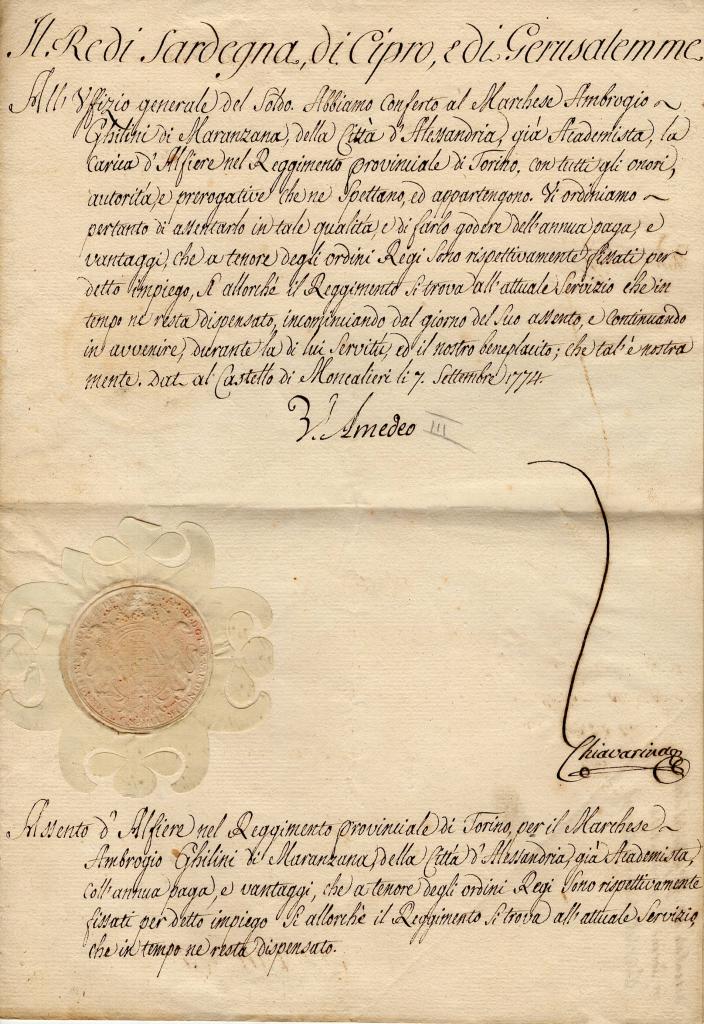 Il Re di Sardegna, di Cipro, e di Gerusalemme
All' Uffizio generale del Soldo. Abbiamo conferto al Marchese Ambrogio ~
Ghilini di Maranzana, della Città d'Alessandria, già Academista, la
Carica d'Alfiere nel Reggimento Provinciale di Torino, con tutti gli onori,
autorità, e prerogative che ne spettano, ed appartengono. Vi ordiniamo ~
pertanto di assentarlo in tale qualità, e di farlo godere dell'annua paga, e
vantaggi, che a tenore degli ordini Regi sono rispettivamente fissati per
detto impiego, sì allorchè il Reggimento si trova all'attuale Servizio che in
tempo ne resta dispensato, incominciando dal giorno del suo assento, e continuando
in avvenire, durante la di lui Servitù, ed il nostro beneplacito; che tal'è nostra
mente. Dat. al Castello di Moncalieri li 7. Settembre 1774.
V. Amedeo III
Chiavarina
Assento d'Alfiere nel Reggimento Provinciale di Torino, per il Marchese ~
Ambrogio Ghilini di Maranzana, della Città d'Alessandria, già Academista,
coll'annua paga, e vantaggi, che a tenore degli ordini Regi sono rispettivamente
fissati per detto impiego sì allorchè il Reggimento si trova all'attuale Servizio,
che in tempo ne resta dispensato.